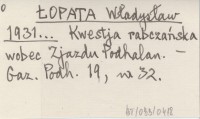 ŁOPATA Władysław
1931... Kwestja rabczańska
wobec Zjazdu Podhalan. –
Gaz. Podh. 19, nr 32.